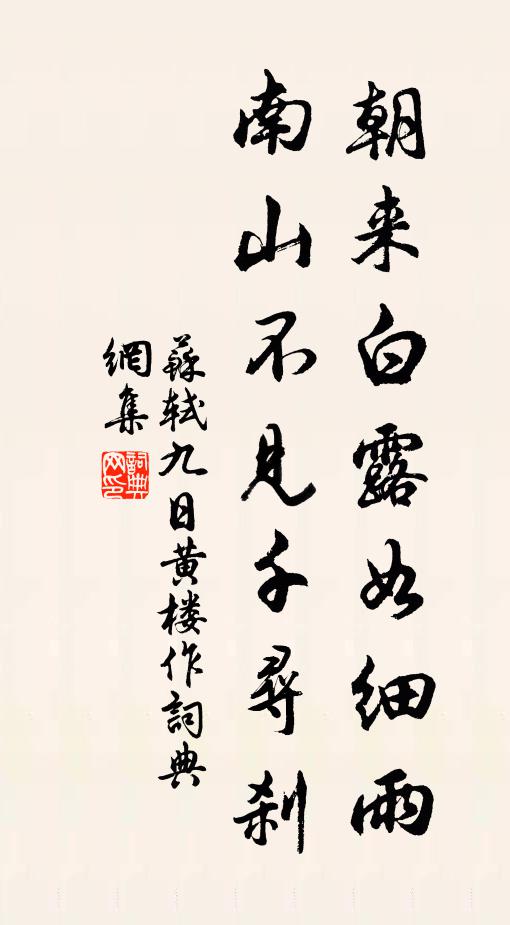 朝来白露如细雨
南山不见千尋刹
蘇軾九日黄楼作詞典
網集
詞典
网印